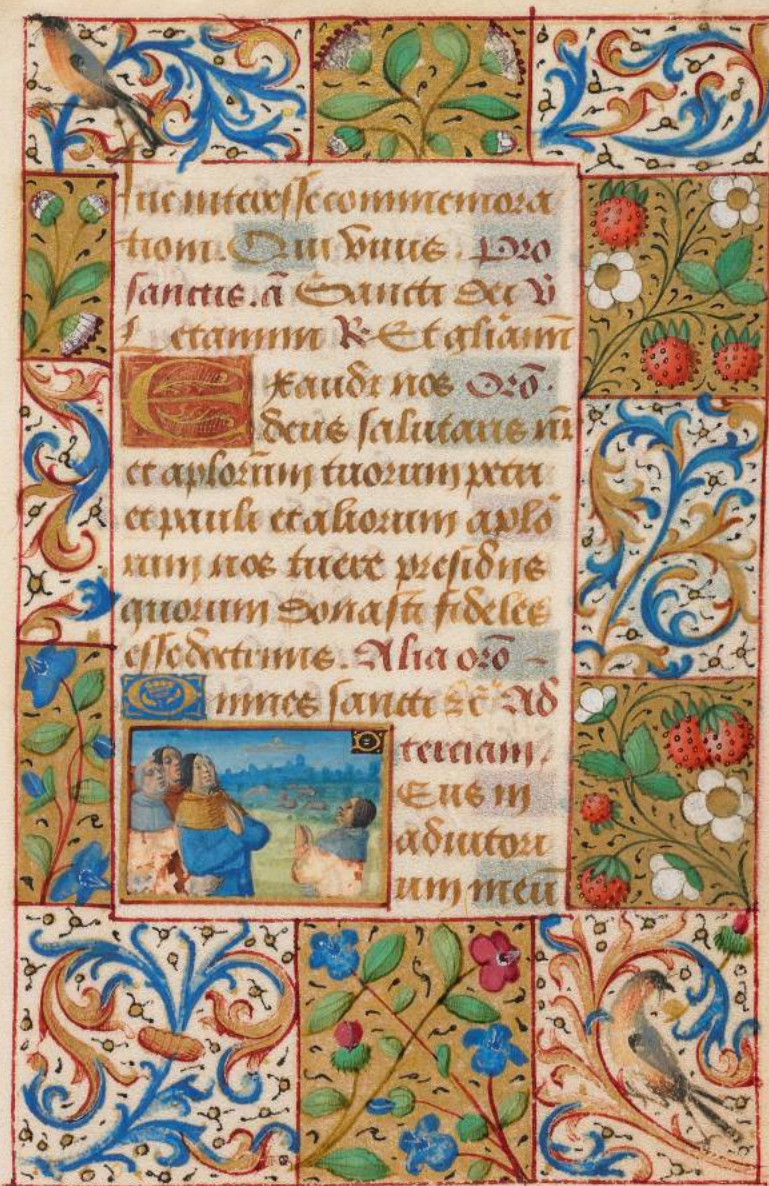 sue interesse commemora
tioni. Qui vivis. Pro
sanctis. ā Sancti dei v̄
L etamini R Et gl̄iamī
Exaudi nos Orō.
deus salutaris nr̄
et apl̄orum tuorum petri
et pauli et aliorum aplō
rum nos tuere presidiis
quorum donasti fideles
esse doctrinis. Alia orō
Omnes sancti zc̄ Ad
terciam,
Deus in
adiutori
um meū